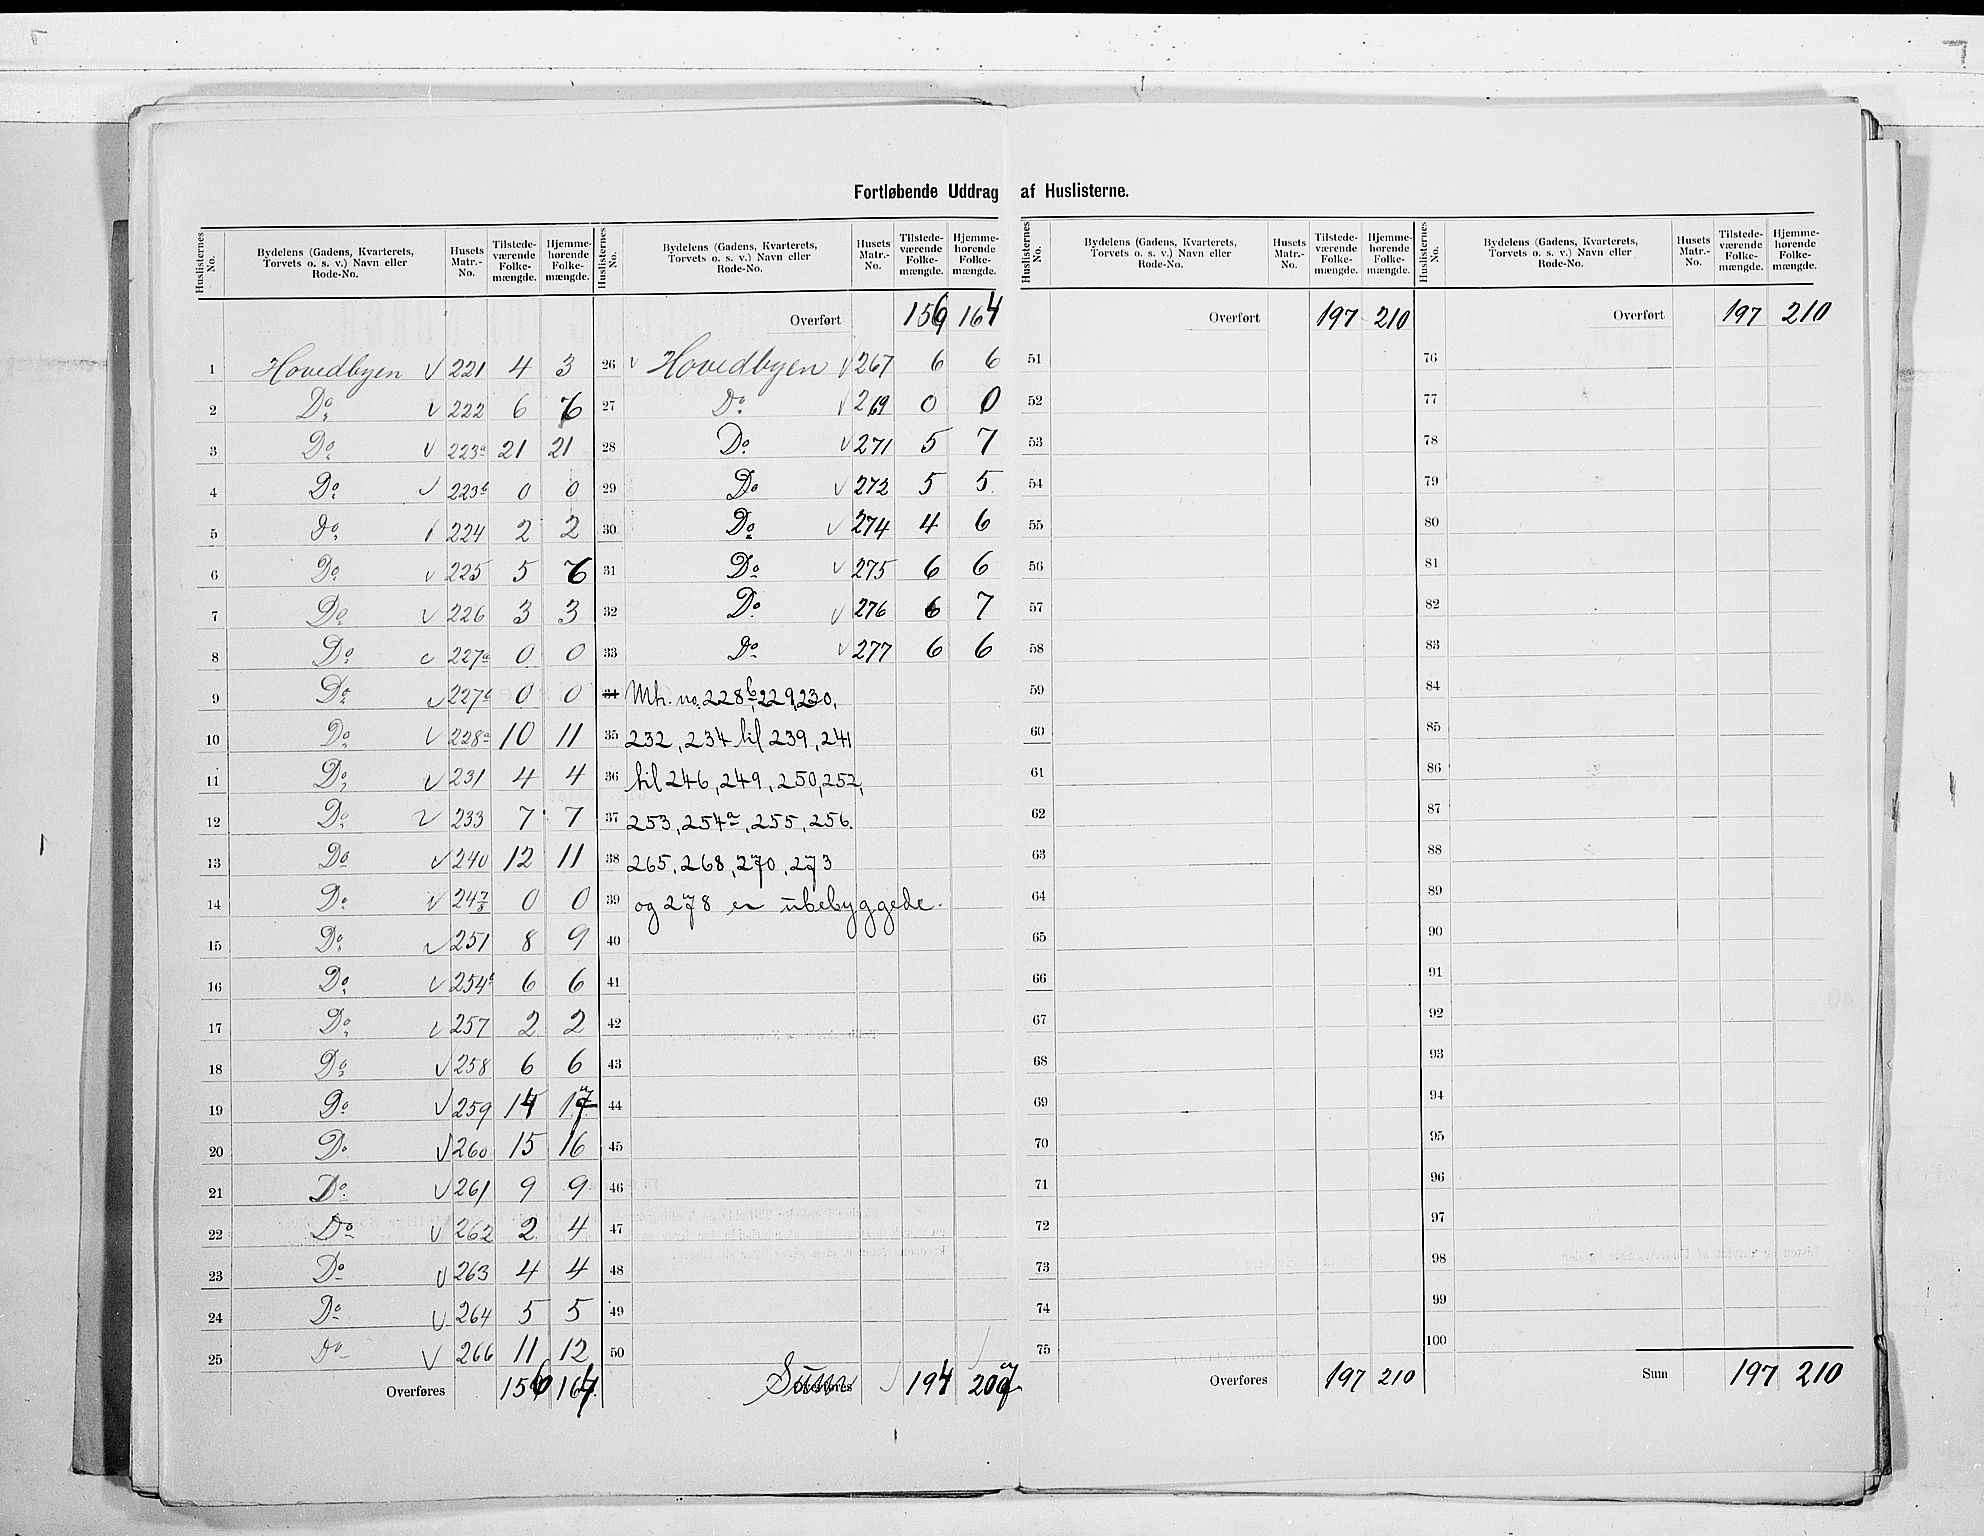 Fortløbende Uddrag af Huslisterne.
Huslisternes No. | Bydelens (Gadens, Kvarterets, Torvets o. s. v.) Navn eller Rode-No. | Husets Matr.-No. | Tilstedeværende Folkemængde. | Hjemmehørende Folkemængde.
1 Hovedbyen 221 4 3
2 Do 222 6
3 Do 223a 21 21
4 Do 223b 0 0
5 Do 224 2 2
6 Do 225 5
7 Do 226 3 3
8 Do 227a 0 0
9 Do 227b 0 0
10 Do 228a 10 11
11 Do 231 4 4
12 Do 233 7 7
13 Do 240 12 11
14 Do 247/8 0 0
15 Do 251 8 9
16 Do 254b 6 6
17 Do 257 2 2
18 Do 258 6 6
19 Do 259 14 17
20 Do 260 15 16
21 Do 261 9 9
22 Do 262 2 4
23 Do 263 4 4
24 Do 264 5 5
25 Do 266 11 12
Overføres 156 164
Huslisternes No. | Bydelens (Gadens, Kvarterets, Torvets o. s. v.) Navn eller Rode-No. | Husets Matr.-No. | Tilstedeværende Folkemængde. | Hjemmehørende Folkemængde.
Overført 156 164
26 Hovedbyen 267 6 6
27 Do 269 0 0
28 Do 271 5 7
29 Do 272 5 5
30 Do 274 4 6
31 Do 275 6 6
32 Do 276 6 7
33 Do 277 6 6
34 Mtr. no. 228b, 229, 230,
35 232, 234 til 239, 241
36 til 246, 249, 250, 252,
37 253, 254a, 255, 256.
38 265, 268, 270, 273
39 og 278 er ubebyggede.
40
41
42
43
44
45
46
47
48
49
50
Overføres Summa 194 207
Huslisternes No. | Bydelens (Gadens, Kvarterets, Torvets o. s. v.) Navn eller Rode-No. | Husets Matr.-No. | Tilstedeværende Folkemængde. | Hjemmehørende Folkemængde.
Overført 197 210
51
52
53
54
55
56
57
58
59
60
61
62
63
64
65
66
67
68
69
70
71
72
73
74
75
Overføres 197 210
Huslisternes No. | Bydelens (Gadens, Kvarterets, Torvets o. s. v.) Navn eller Rode-No. | Husets Matr.-No. | Tilstedeværende Folkemængde. | Hjemmehørende Folkemængde.
Overført 197 210
76
77
78
79
80
81
82
83
84
85
86
87
88
89
90
91
92
93
94
95
96
97
98
99
100
Sum 197 210